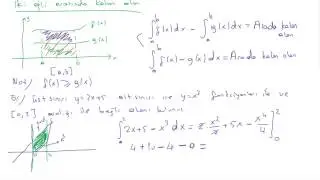 İki eğri arasında kalan alan
y
f(x)
g(x)
a b x
[a,b]
∫ₐᵇ f(x)dx - ∫ₐᵇ g(x)dx = Arada kalan alan
∫ₐᵇ f(x) - g(x) dx = Arada kalan alan
Not/ f(x) ≥ g(x)
Ör/ Üst sınırı y=2x+5 alt sınırı ise y=x³ fonksiyonları ile ve
[0,2] aralığı ile bağlı alanı bulunuz
∫₀² 2x+5-x³ dx = 2·x²/2 + 5x - x⁴/4 |₀²
4+10-4-0 =